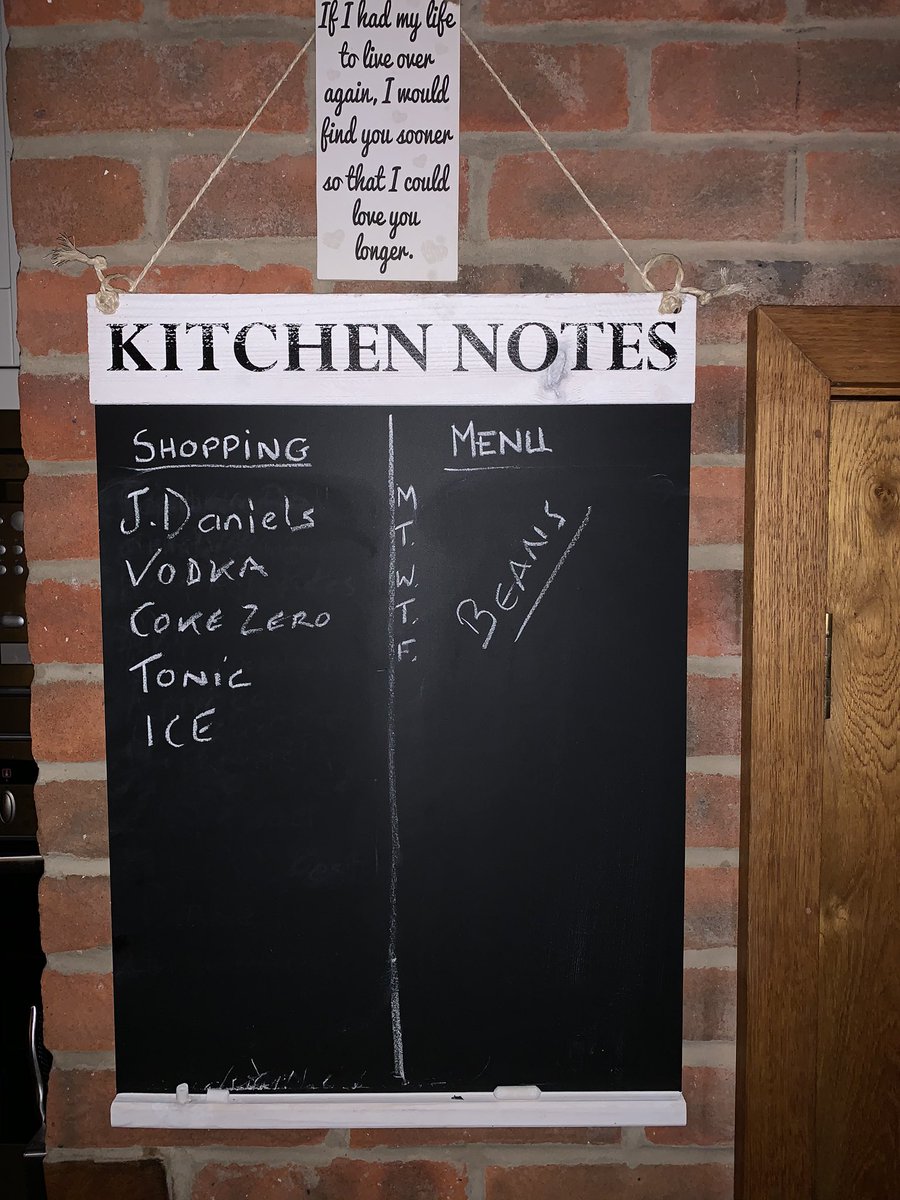 If I had my life
to live over
again, I would
find you sooner
so that I could
love you
longer.
KITCHEN NOTES
SHOPPING
J. Daniels
VODKA
COKE ZERO
TONIC
ICE
MENU
M
T.
W.
T.
F.
BEANS